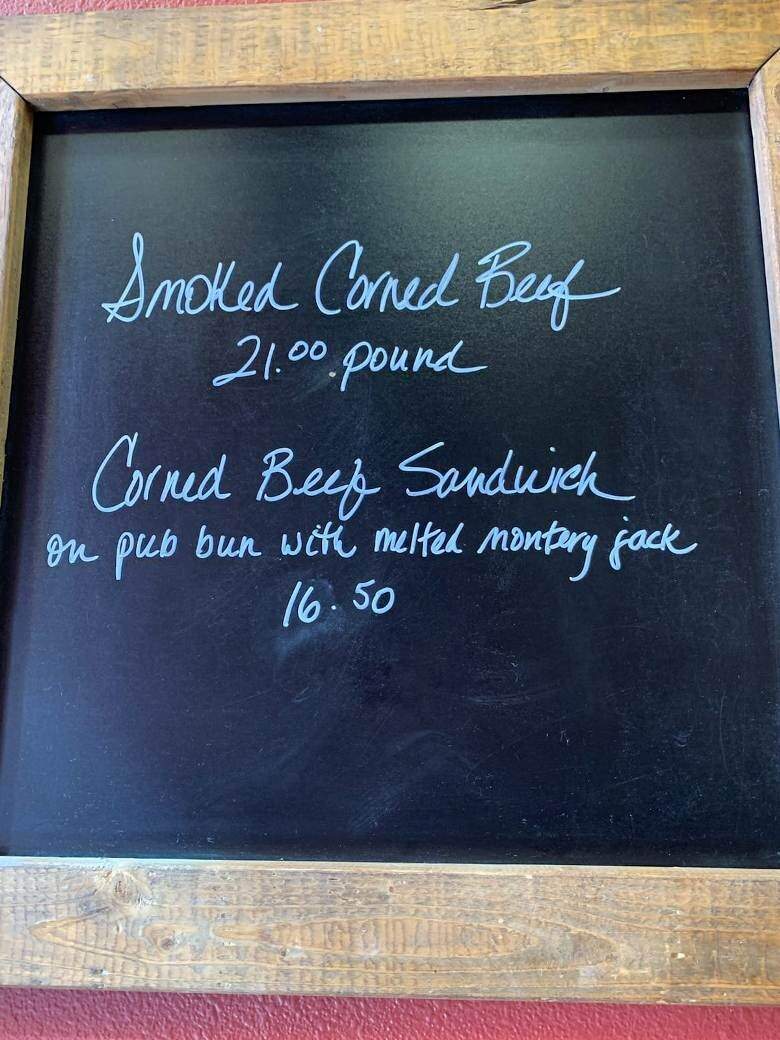 Smoked Corned Beef
21.00 pound
Corned Beef Sandwich
on pub bun with melted montery jack
16.50